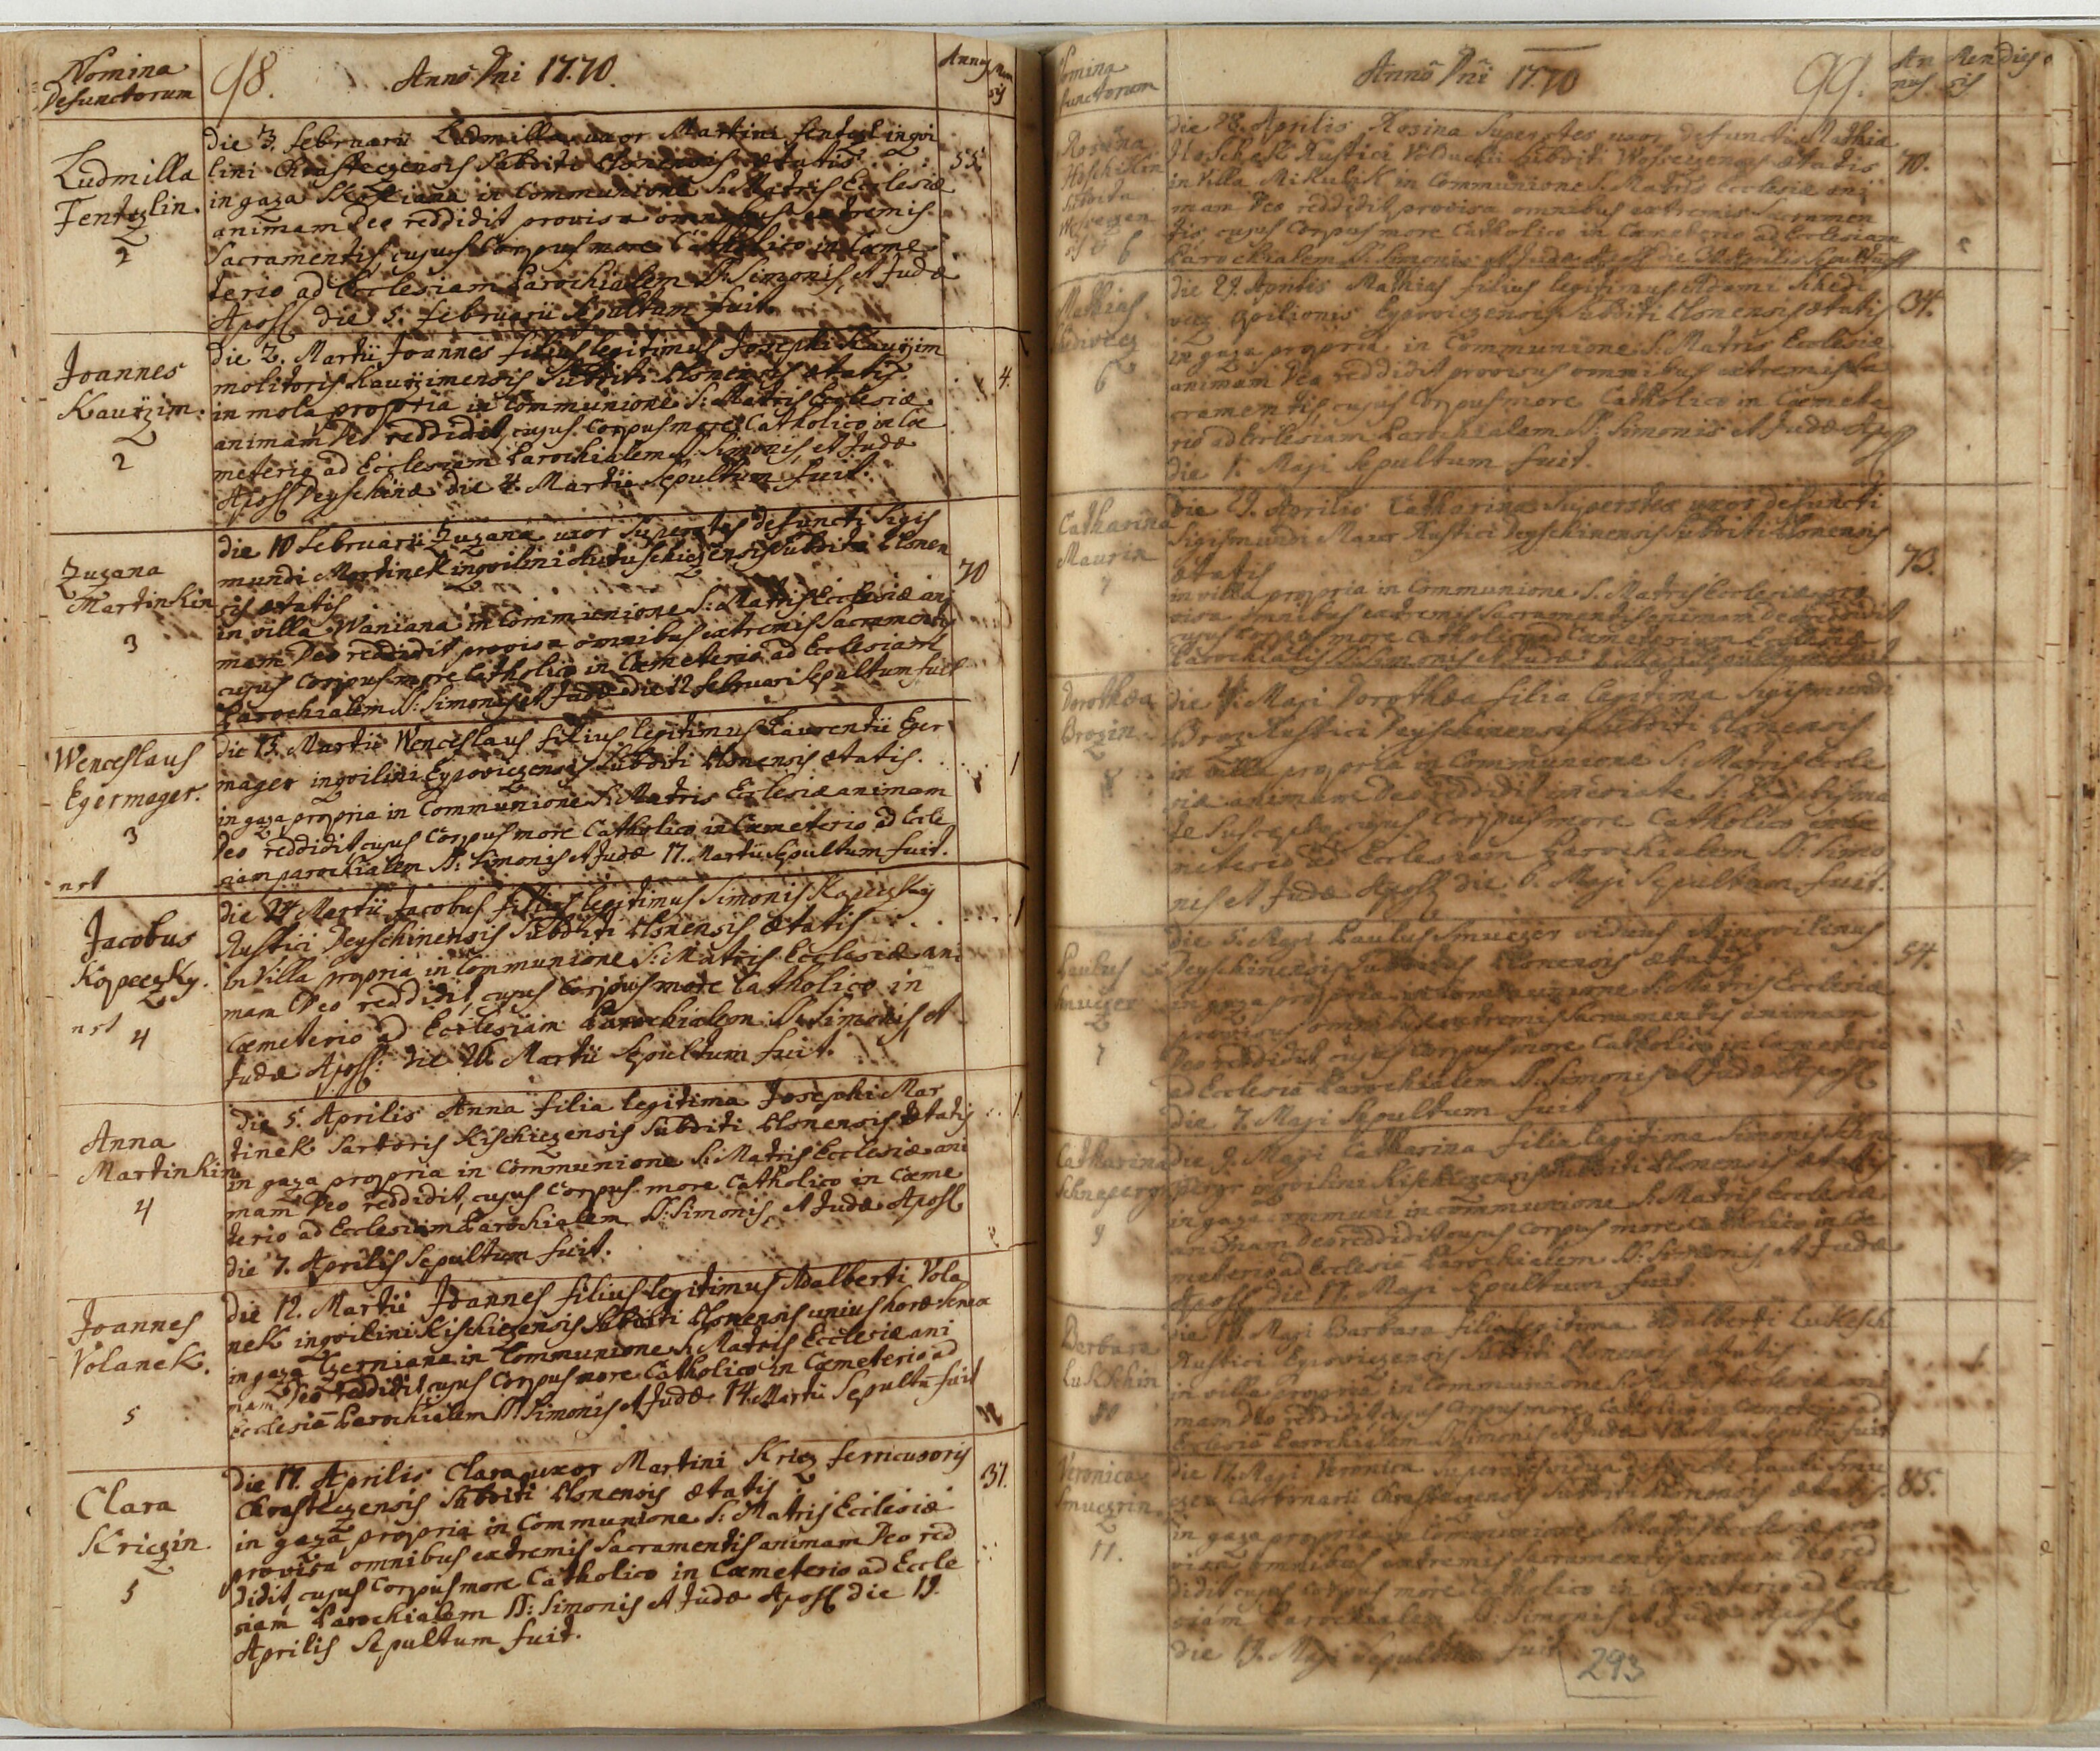 Nomina
Defunctorum
98.
Anno Dni 1770.
Annus
Men
sis
Ludmilla
Fentzlin.
2
die 3. Februarii Ludmilla uxor Martini Fentzl inqvi
lini Chrasteczensis Subditi Usnensis ætatis
55.
in gaza in Communione S: Matris Ecclesiæ
animam Deo reddidit provisa omnibus extremis
Sacramentis, cujus Corpus more Catholico in Cæme
terio ad Ecclesiam Parochialem SS: Simonis et Judæ
Apost die 5. Februarii Sepultum fuit.
Joannes
Kaurzim.
2
die 2. Martii Joannes filius legitimus Josephi Kaurzim
molitoris Kaurzimensis Subditi Usnensis ætatis
4.
in mola propria in Communione S: Matris Ecclesiæ
animam Deo reddidit, cujus Corpus more Catholico in Cæ
meterio ad Ecclesiam Parochialem SS: Simonis et Judæ
Apost Deyschinæ die 4. Martii Sepultum fuit.
Zuzana
Martinkin
3
die 10 Februarii Zuzana uxor Superstes defuncti Sigis
mundi Martinek inqvilini Subdita Usnen
sis ætatis
70
in villa Waniana in Communione S: Matris Ecclesiæ ani
mam Deo reddidit provisa omnibus extremis Sacramentis
cujus Corpus more Catholico in Cæmeterio ad Ecclesiam
Parochialem SS: Simonis et Judæ die 12 Februari Sepultum fuit
Wenceslaus
Egermager.
3
nrt
die 15. Martii Wenceslaus filius legitimus Laurentii Eger
mager inqvilini Eypoviczensis Subditi Usnensis ætatis.
1
in gaza propria in Communione S: Matris Ecclesiæ animam
Deo reddidit, cujus Corpus more Catholico in Cæmeterio ad Eccle
siam parochialem SS: Simonis et Judæ 17. Martii Sepultum fuit.
Jacobus
Kopeczky.
nrt 4
die 24 Martii Jacobus filius legitimus Simonis Kopeczky
Rustici Deyschinensis Subditi Usnensis ætatis
1
in Villa propria in Communione S: Matris Ecclesiæ ani
mam Deo reddidit, cujus Corpus more Catholico in
Cæmeterio ad Ecclesiam Parochialem SS: Simonis et
Judæ Apost: die 26 Martii Sepultum fuit.
Anna
Martinkin
4
die 5. Aprilis Anna filia legitima Josephi Mar
tinek Sartoris Kischiczensis Subditi Usnensis ætatis
1.
in gaza propria in Communione S: Matris Ecclesiæ ani
mam Deo reddidit, cujus Corpus more Catholico in Cæme
terio ad Ecclesiam Parochialem SS: Simonis et Judæ Apost
die 7. Aprilis Sepultum fuit.
Joannes
Volanek.
5
die 12. Martii Joannes filius legitimus Adalberti Vola
nek inqvilini Kischiczensis Subditi Usnensis unius horæ
in gaza Czerniana in Communione S: Matris Ecclesiæ ani
mam Deo reddidit, cujus Corpus more Catholico in Cæmeterio ad
Ecclesiã Parochialem SS: Simonis et Judæ 14. Martii Sepultũ fuit
Clara
Kriczin.
5
die 17. Aprilis Clara uxor Martini Kricz ferricusoris
Chrasteczensis Subditi Usnensis ætatis
37.
in gaza propria in Communione S: Matris Ecclesiæ
provisa omnibus extremis Sacramentis animam Deo red
didit, cujus Corpus more Catholico in Cæmeterio ad Eccle
siam Parochialem SS: Simonis et Judæ Apost die 19.
Aprilis Sepultum fuit.
Nomina
Defunctorum
Anno Dni 1770
99.
An
nus
Men
sis
dies
Rosina
6
die 28. Aprilis Rosina Superstes uxor defuncti Mathiæ
Hoschek Rustici Subditi ætatis
70.
in Villa Mikulik in Communione S: Matris Ecclesiæ ani
mam Deo reddidit, provisa omnibus extremis Sacramen
tis cujus Corpus more Catholico in Cæmeterio ad Ecclesiam
Parochialem SS: Simonis et Judæ Apost die 30 Aprilis Sepultum
Mathias
6
die 29. Aprilis Mathias filius legitimus Adami Schedi
vicz opilionis Eypoviczensis Subditi Usnensis ætatis
34.
in gaza propria in Communione S: Matris Ecclesiæ
animam Deo reddidit provisus omnibus extremis Sa
cramentis, cujus Corpus more Catholico in Cæmete
rio ad Ecclesiam Parochialem SS: Simonis et Judæ Apost
die 1. Maji Sepultum fuit.
Catharina
Maurin
7
die 29. Aprilis Catharina Superstes uxor defuncti
Sigismundi Maur Rustici Deyschinensis Subditi Usnensis
ætatis
73.
in villa propria in Communione S: Matris Ecclesiæ pro
visa omnibus extremis Sacramentis animam Deo reddidit
cujus Corpus more Catholico ad Cæmeterium Ecclesiæ
Parochialis SS: Simonis et Judæ
Dorothæa
Brozin.
8
die 4. Maji Dorothæa filia legitima Sigismundi
Broz Rustici Deyschinensis Subditi Usnensis
in villa propria in Communione S: Matris Eccle
siæ animam Deo reddidit immediate S: Baptisma
te Suscepto, cujus Corpus more Catholico in Cæ
meterio ad Ecclesiam Parochialem SS: Simo
nis et Judæ Apost die 6. Maji Sepultum fuit.
Paulus
Smuczer
7
die 5. Maji Paulus Smuczer viduus et inqvilinus
Deyschinensis Subditus Usnensis ætatis
54.
in gaza propria in Communione S: Matris Ecclesiæ
provisus omnibus extremis Sacramentis animam
Deo reddidit, cujus Corpus more Catholico in Cæmeterio
ad Ecclesiã Parochialem SS: Simonis et Judæ Apost
die 7. Maji Sepultum fuit
Catharina
Schnaperg
9
die 9. Maji Catharina filia legitima Simonis Schna
pergr inqvilini Kischiczensis Subditi Usnensis ætatis
17.
in gaza communi in communione S: Matris Ecclesiæ
animam Deo reddidit cujus Corpus more Catholico in Cæ
meterio ad Ecclesiã Parochialem SS: Simonis et Judæ
Apost die 11. Maji Sepultum fuit.
Barbara
Lukschin
10
die Maji Barbara filia legitima Adalberti Lukesch
Rustici Eypoviczensis Subditi Usnensis ætatis
1
in villa propria in Communione S: Matris Ecclesiæ ani
mam Deo reddidit cujus Corpus more Catholico in Cæmeterio ad
Ecclesiã Parochialem SS: Simonis et Judæ Maji Sepultũ fuit
Veronica
Smuczrin.
11.
die 17. Maji Veronica Superstes vidua defuncti Pauli Smu
czer Carbonarii Chrasteczensis Subditi Usnensis ætatis.
85.
in gaza propria in Communione S: Matris Ecclesiæ pro
visa omnibus extremis Sacramentis animam Deo red
didit cujus Corpus more Catholico in Cæmeterio ad Eccle
siam Parochialem SS: Simonis et Judæ Apost
die 19. Maji Sepultum fuit
293